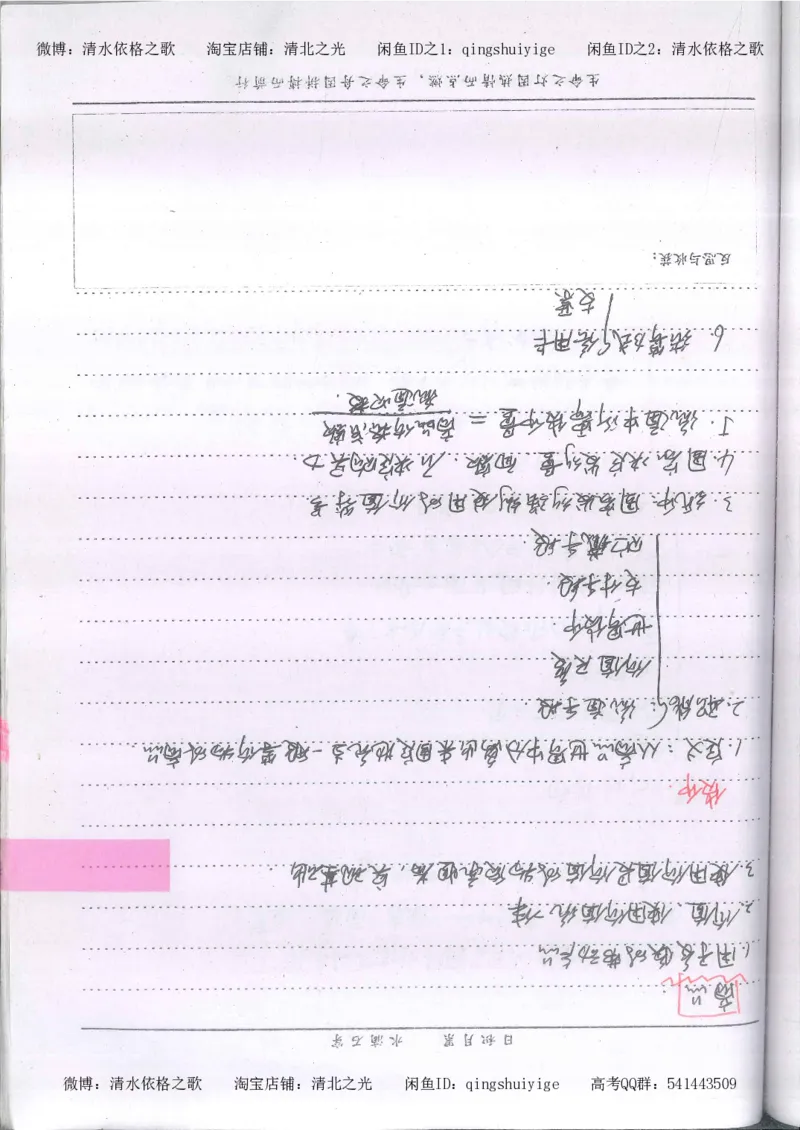 微博：清水依格之歌 淘宝店铺：清北之光 闲鱼ID之1：qingshuiyige 闲鱼ID之2：清水依格之歌
日积月累 水滴石穿
商品
1.用于交换的劳动产品
2.价值、使用价值统一体
3.使用价值是价值的物质承担者，
货币.
1.定义：从商品世界中分离出来固定地充当一般等价物的商品.
2.职能：流通手段
价值尺度
世界货币
支付手段
贮藏手段.
3.纸币：国家发行强制使用的价值符号
4.国家决定发行量、面额，不决定购买力
5.流通中所需货币量 = 商品价格总额
流通次数.
6.结算方式 信用卡
支票
反思与收获：
生命之灯因热情而点燃，生命之舟因拼搏而前行
微博：清水依格之歌 淘宝店铺：清北之光 闲鱼ID：qingshuiyige 高考QQ群：541443509